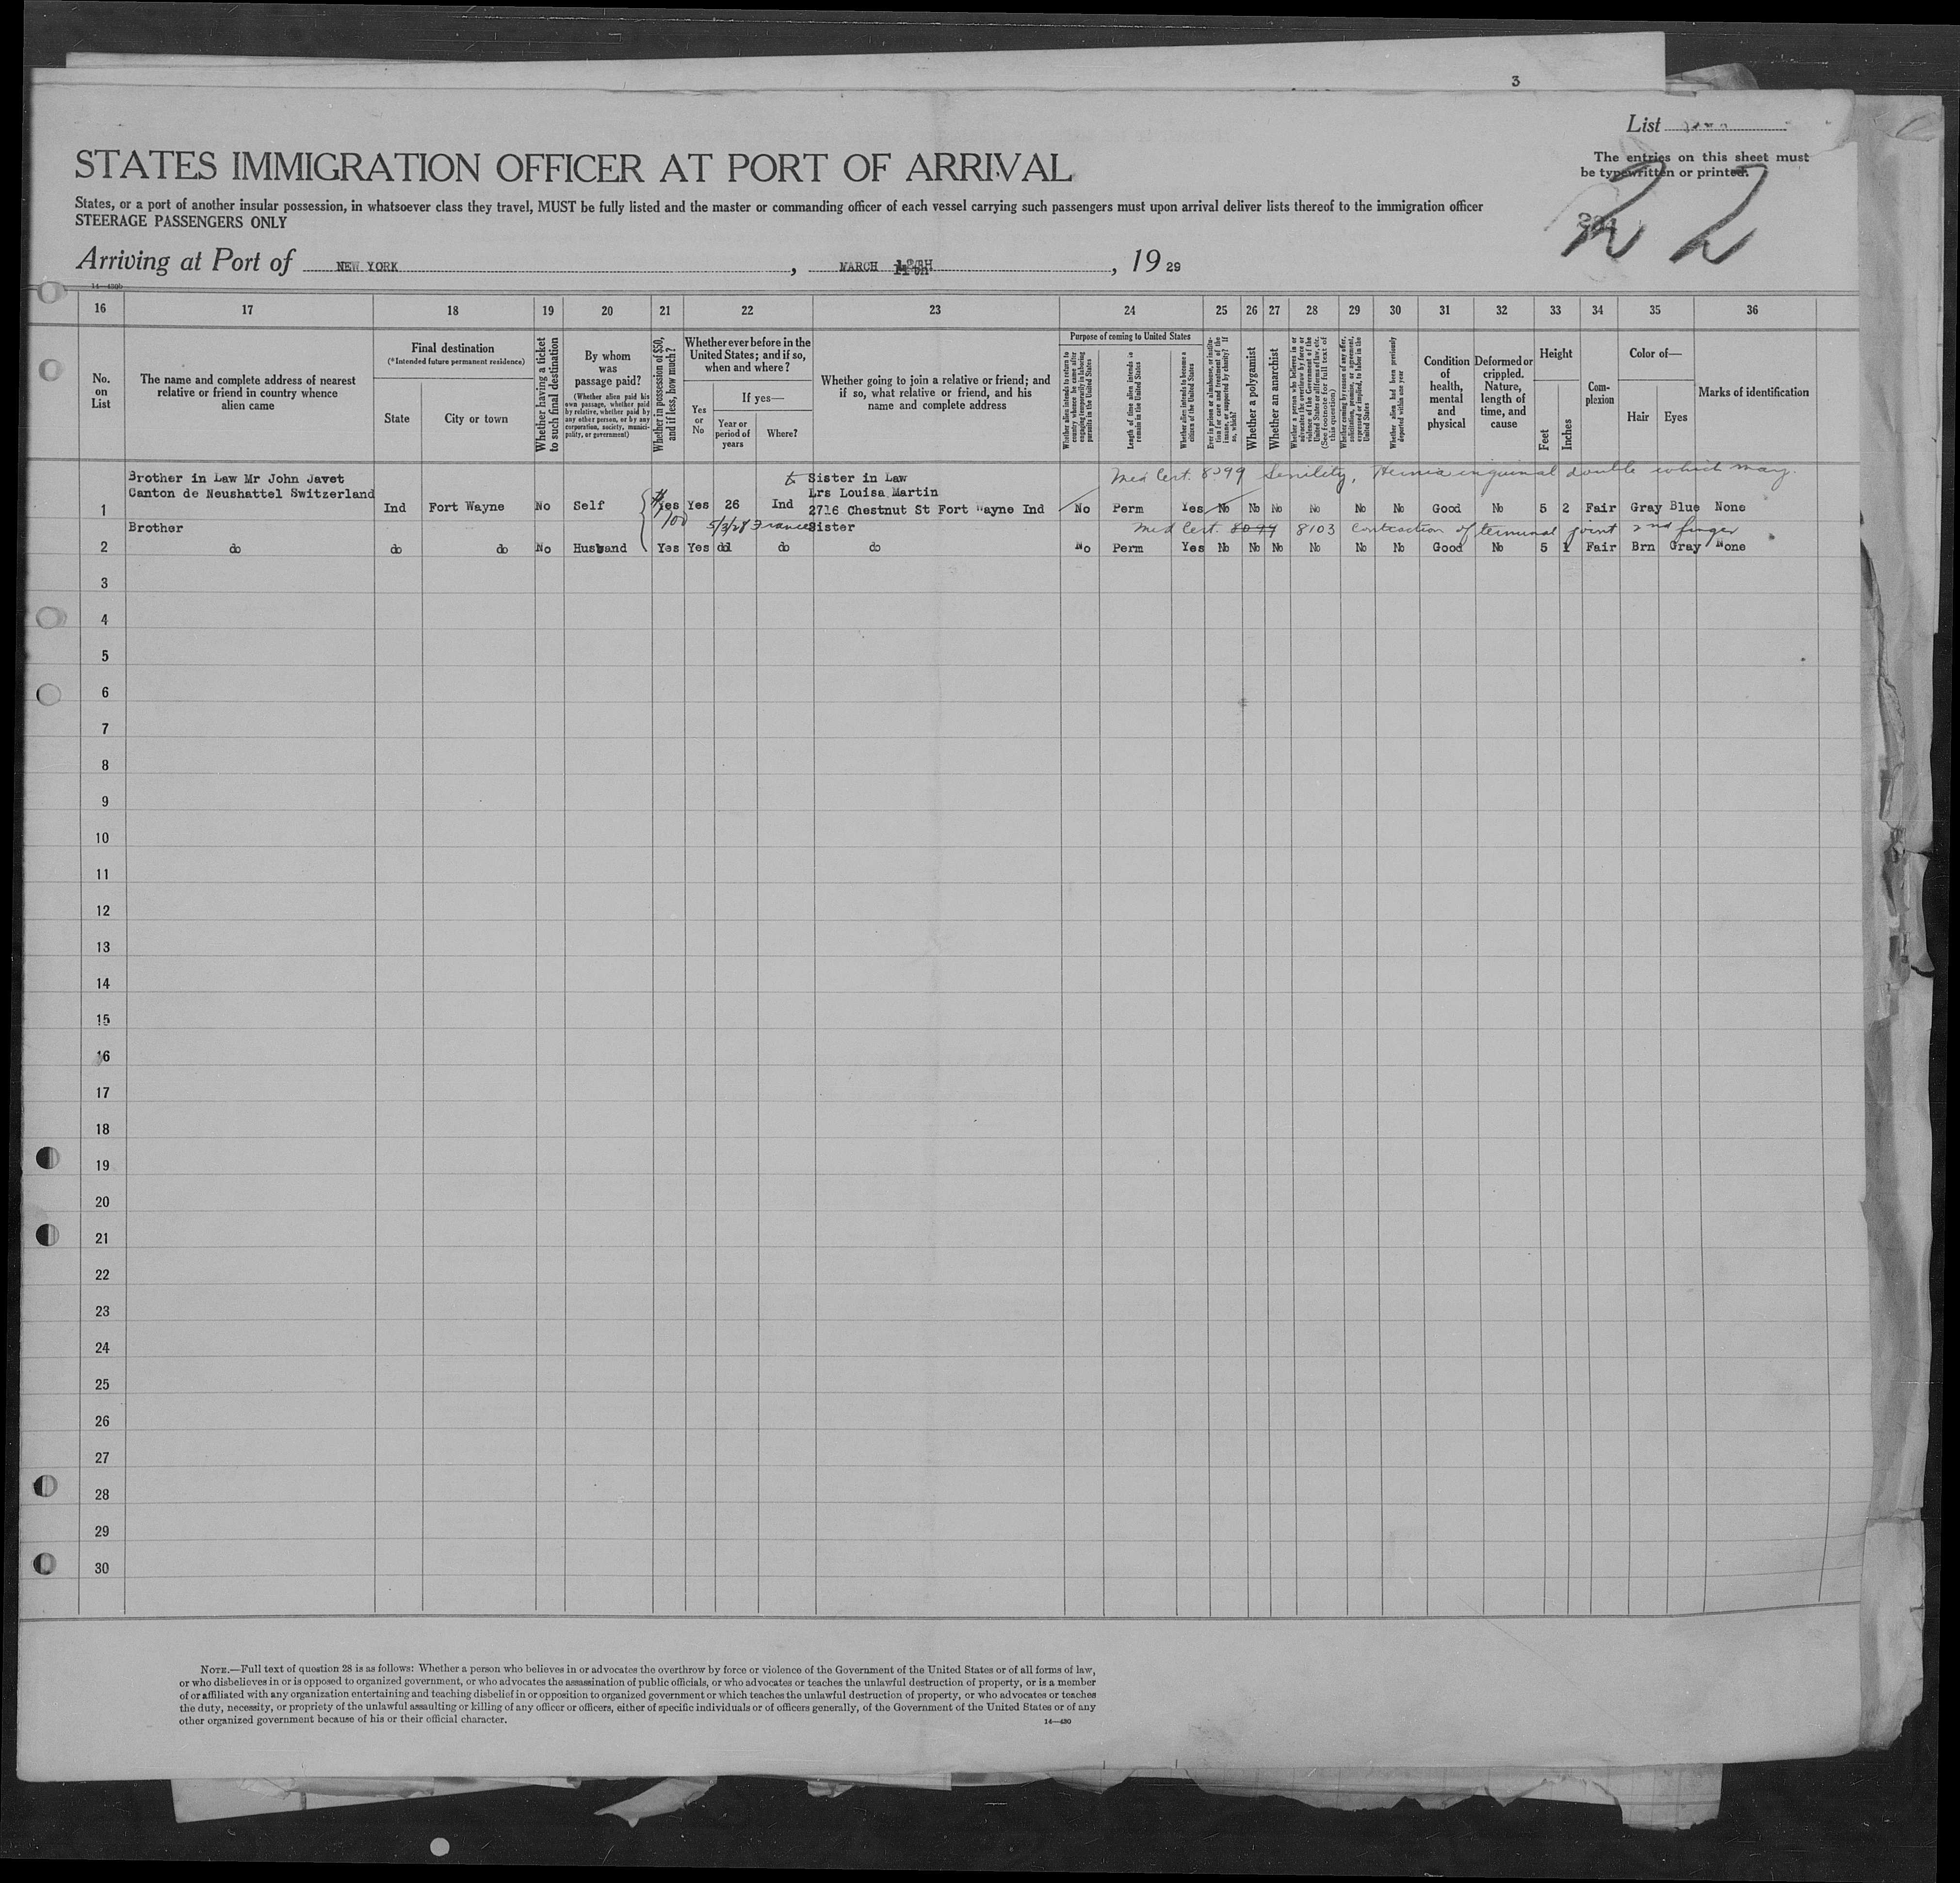 3
List
STATES IMMIGRATION OFFICER AT PORT OF ARRIVAL
The entries on this sheet must
be typewritten or printed.
States, or a port of another insular possession, in whatsoever class they travel, MUST be fully listed and the master or commanding officer of each vessel carrying such passengers must upon arrival deliver lists thereof to the immigration officer
STEERAGE PASSENGERS ONLY
22
Arriving at Port of NEW YORK, MARCH, 1929
14—430b
16 17 18 19 20 21 22 23 24 25 26 27 28 29 30 31 32 33 34 35 36
No. on List
The name and complete address of nearest relative or friend in country whence alien came
Final destination
(*Intended future permanent residence)
State
City or town
Whether having a ticket to such final destination
By whom was passage paid?
(Whether alien paid his own passage, whether paid by relative, whether paid by any other person, or by any corporation, society, municipality, or government)
Whether in possession of $50, and if less, how much?
Whether ever before in the United States; and if so, when and where?
Yes or No
If yes—
Year or period of years
Where?
Whether going to join a relative or friend; and if so, what relative or friend, and his name and complete address
Purpose of coming to United States
Whether alien intends to return to country whence he came after engaging temporarily in laboring pursuits in the United States
Length of time alien intends to remain in the United States
Whether alien intends to become a citizen of the United States
Ever in prison or almshouse, or institution for care and treatment of the insane, or supported by charity? If so, which?
Whether a polygamist
Whether an anarchist
Whether a person who believes in or advocates the overthrow by force or violence of the Government of the United States or all forms of law, etc. (See footnote for full text of this question)
Whether coming by reason of any offer, solicitation, promise, or agreement, expressed or implied, to labor in the United States
Whether alien had been previously deported within one year
Condition of health, mental and physical
Deformed or crippled. Nature, length of time, and cause
Height
Feet
Inches
Complexion
Color of—
Hair
Eyes
Marks of identification
Brother in Law Mr John Javet Sister in Law Med Cert. 8099 Senility, Hernia inguinal double which may.
Canton de Neushattel Switzerland Lrs Louisa Martin
1 Ind Fort Wayne No Self $ Yes Yes 26 Ind 2716 Chestnut St Fort Wayne Ind No Perm Yes No No No No No No Good No 5 2 Fair Gray Blue None
Brother 100 5/3/28 France Sister Med Cert. 8099 8103 Contraction of terminal joint 2nd finger
2 do do do No Husband Yes Yes do do No Perm Yes No No No No No No Good No 5 1 Fair Brn Gray None
3
4
5
6
7
8
9
10
11
12
13
14
15
16
17
18
19
20
21
22
23
24
25
26
27
28
29
30
NOTE.—Full text of question 28 is as follows: Whether a person who believes in or advocates the overthrow by force or violence of the Government of the United States or of all forms of law,
or who disbelieves in or is opposed to organized government, or who advocates the assassination of public officials, or who advocates or teaches the unlawful destruction of property, or is a member
of or affiliated with any organization entertaining and teaching disbelief in or opposition to organized government or which teaches the unlawful destruction of property, or who advocates or teaches
the duty, necessity, or propriety of the unlawful assaulting or killing of any officer or officers, either of specific individuals or of officers generally, of the Government of the United States or of any
other organized government because of his or their official character.
14—430